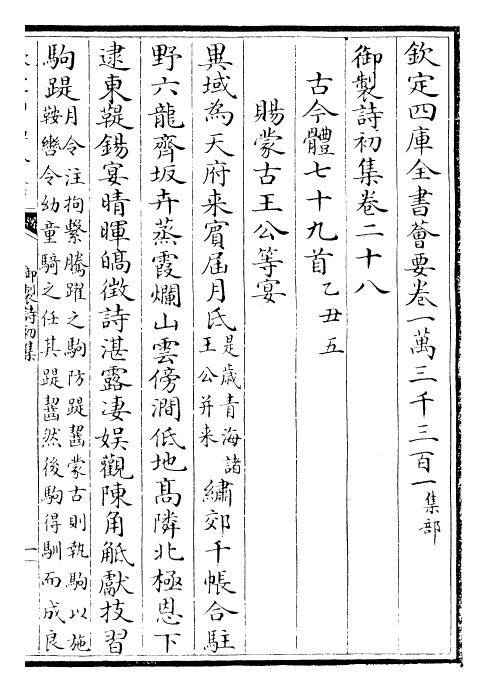 欽定四庫全書薈要卷一萬三千三百一集部
御製詩初集卷二十八
古今體七十九首乙丑五
賜蒙古王公等宴
異域為天府来賓届月氏是歲青海諸王公并来繡郊千帳合駐
野六龍齊坂卉蒸霞爛山雲傍澗低地髙隣北極恩下
逮東鞮錫宴晴暉皜徴詩湛露凄娱觀陳角觝獻技習
駒踶月令注拘繫騰躍之駒防踶齧蒙古則執駒以施鞍轡令幼童騎之任其踶齧然後駒得馴而成良
御製詩初集
一